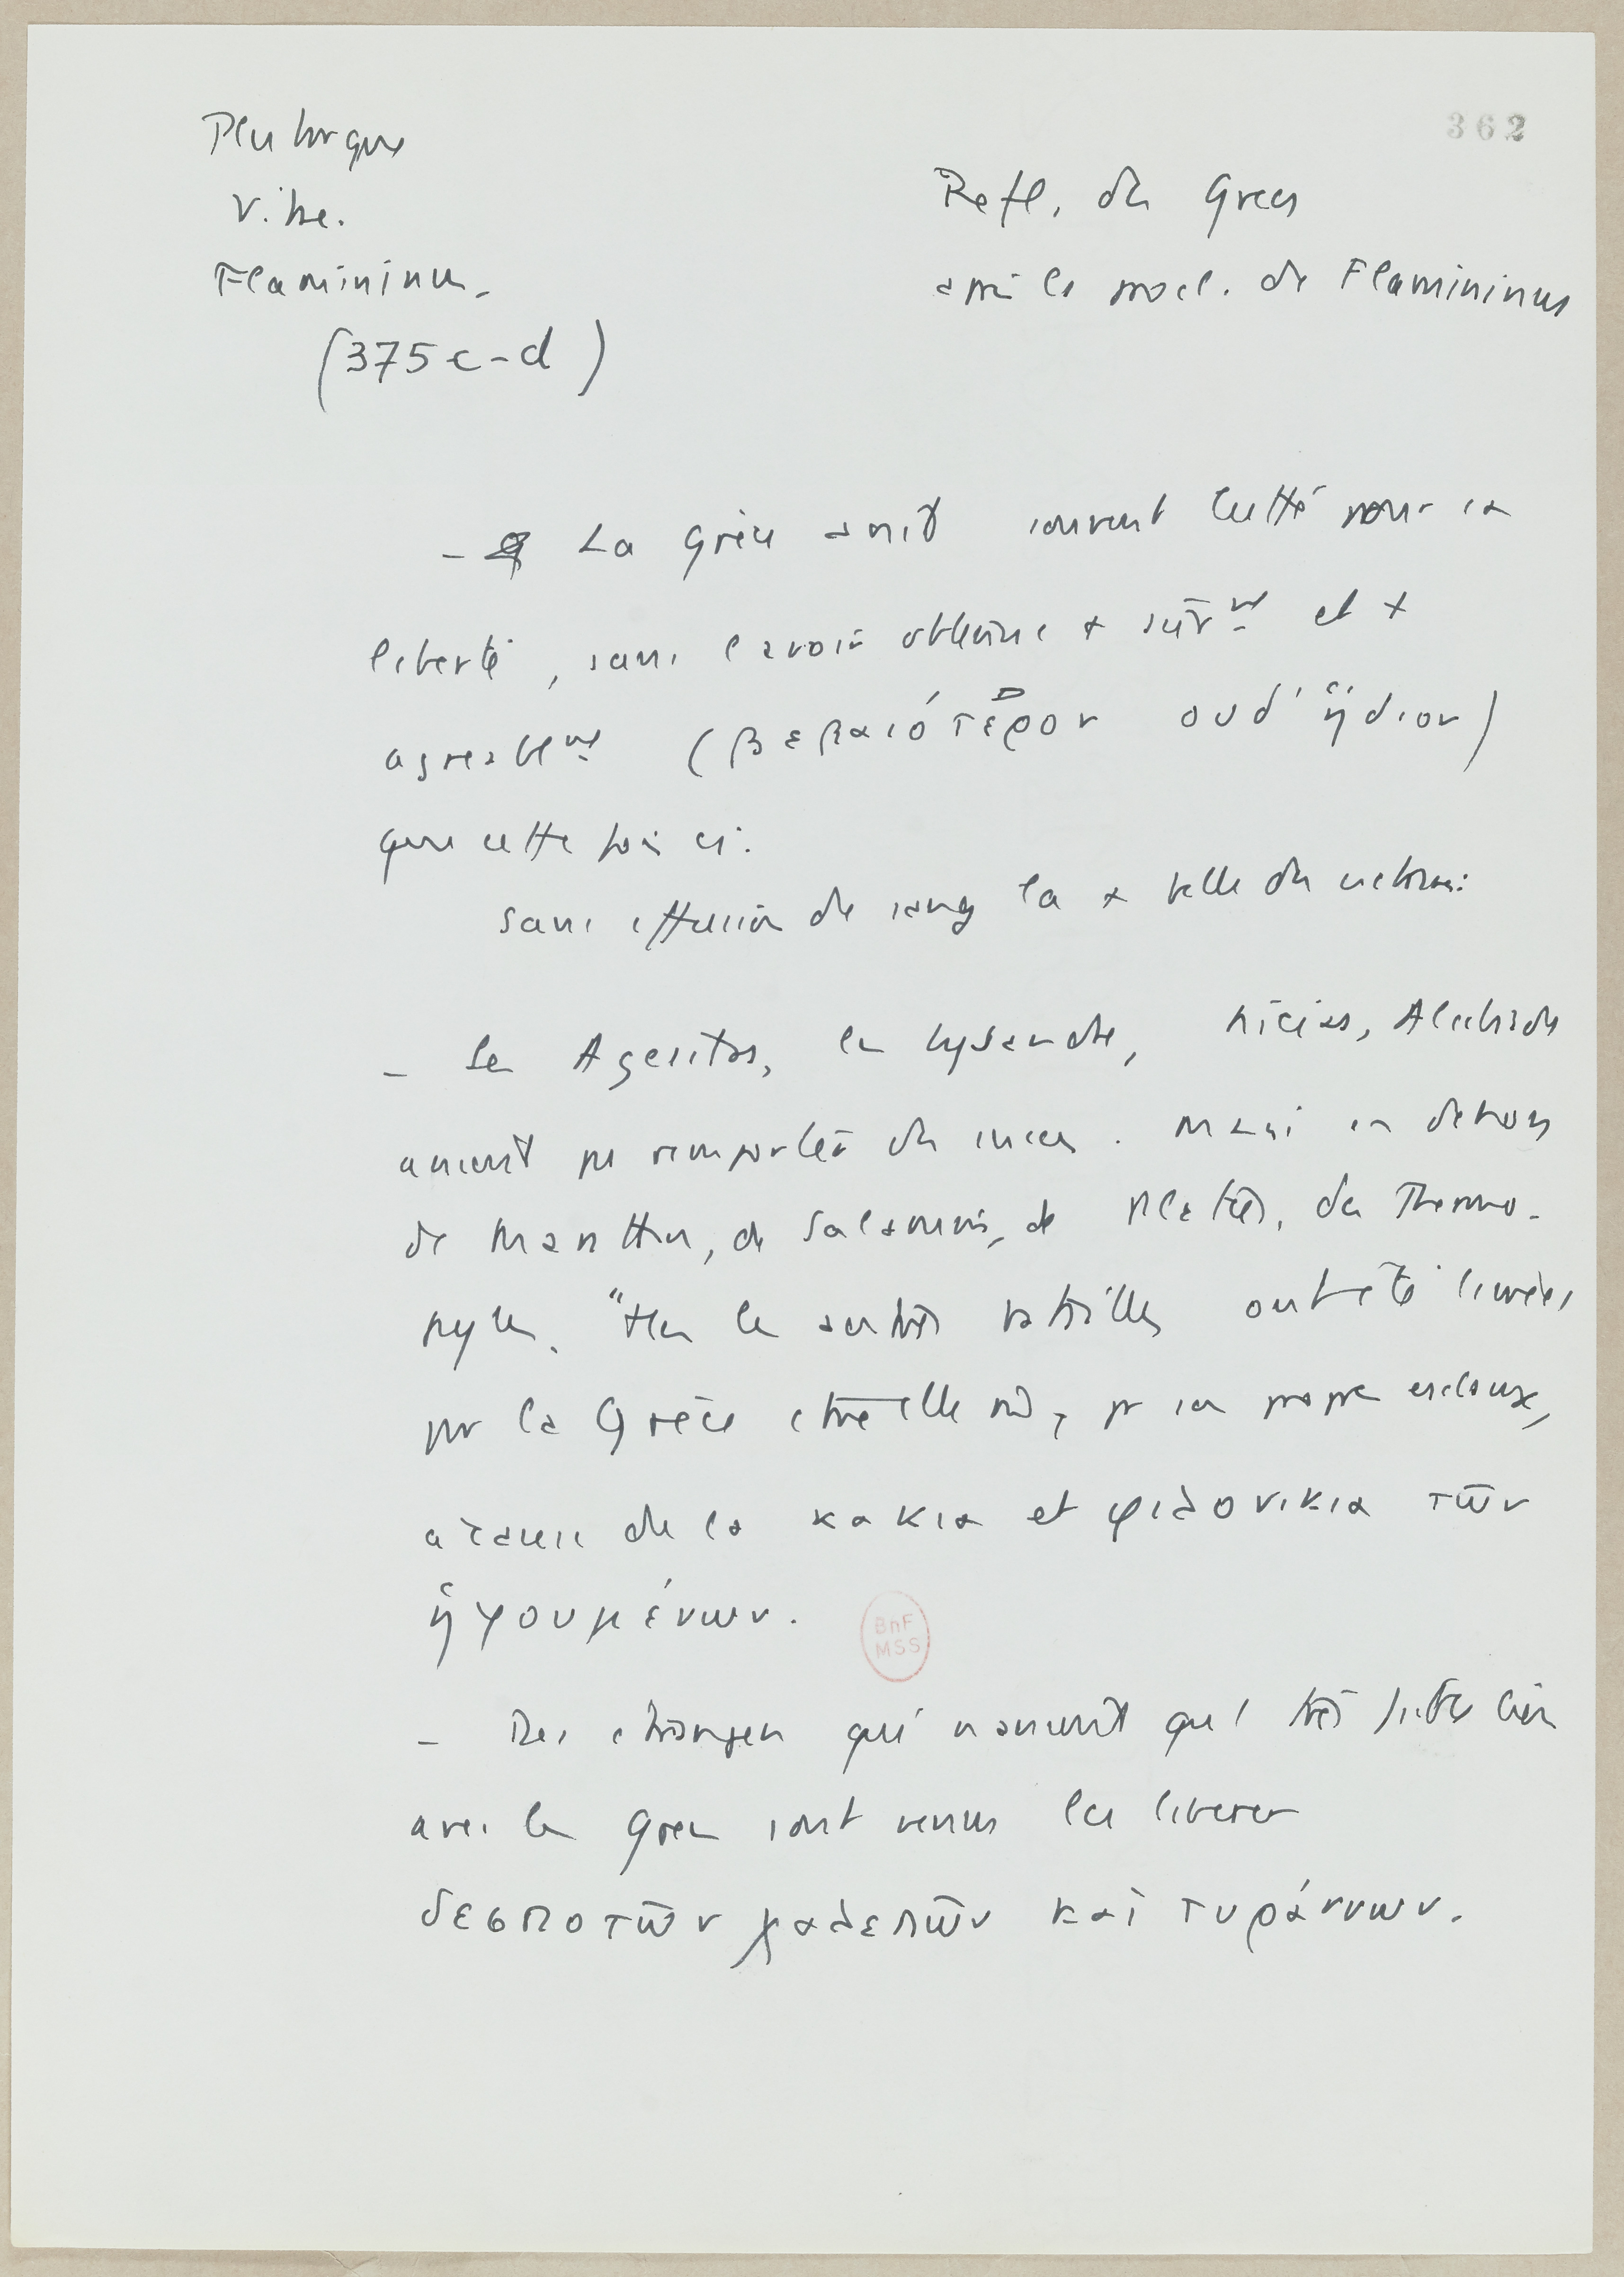 Plutarque
Vitae.
Flamininus.
(375 c-d)
362
Refl. des Grecs
après la procl. de Flamininus
- La Grèce avait souvent lutté pour sa
liberté, sans l'avoir obtenue + sûrnt et +
agréablnt (βεβαιότερον ουδ' ἥδιον)
que cette fois ci.
Sans effusion de sang la + belle des victoires
- Les Agésilas, les Lysandre, Nicias, Alcibiade
avaient pu remporter des succès. Mais en dehors
de Marathon, de Salamine, de Platées, des Thermo-
pyles. "ttes les autres batailles ont été livrées
par la Grèce contre elle m̄, pr son propre esclavage,
à cause de la κακια et φιλονικια τῶν
ἡγουμένων.
BnF
MSS
- Des étrangers qui n'avaient qu'1 très faible lien
avec les Grecs sont venus les libérer
δεσποτῶν χαλεπῶν καὶ τυράννων.